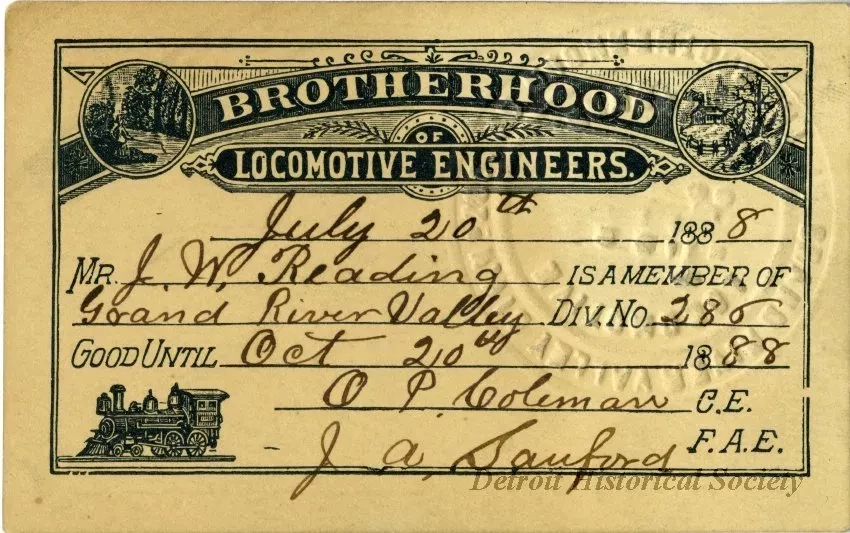 BROTHERHOOD
OF
LOCOMOTIVE ENGINEERS.
July 20th 1888
MR. J. W. Reading IS A MEMBER OF
Grand River Valley DIV. No. 286
GOOD UNTIL Oct 20th 1888
O. P. Coleman C.E.
J. A. Sanford F.A.E.
Detroit Historical Society